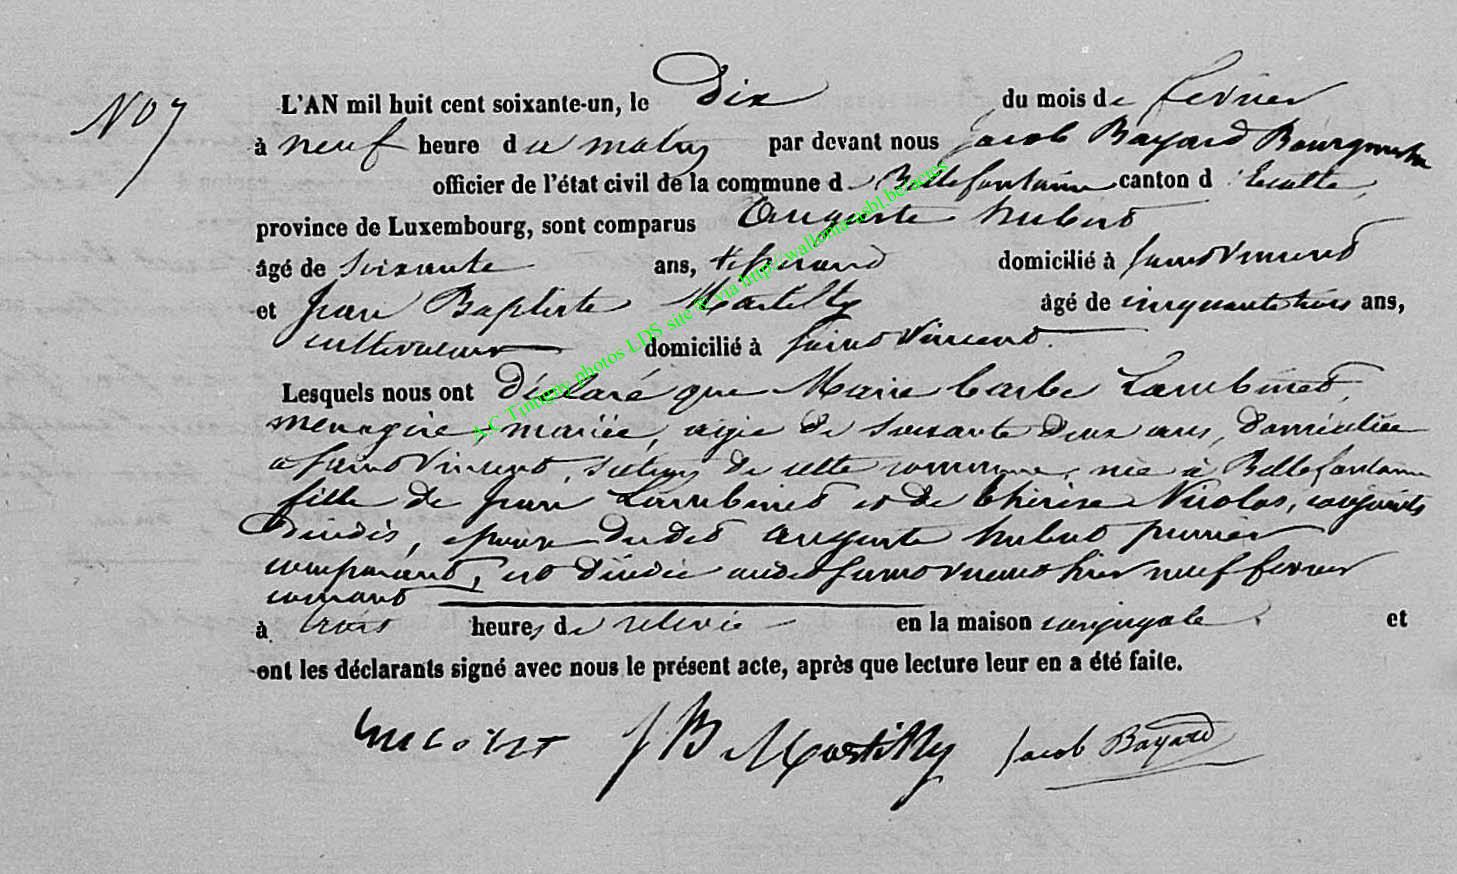 No 7
L'AN mil huit cent soixante-un, le Dix du mois de fevrier
à neuf heure du matin par devant nous Jacob Bayard Bourgmestre
officier de l'état civil de la commune de Bellefontaine canton d'Etalle,
province de Luxembourg, sont comparus Auguste hubert
âgé de soixante ans, tisserand domicilié à Saint Vincent
et Jean Baptiste Martilly âgé de cinquante trois ans,
cultivateur domicilié à Saint Vincent.
Lesquels nous ont déclaré que Marie barbe Lambinet,
menagère mariée, agée de soixante deux ans, domiciliée
a Saint Vincent, section de cette commune, née à Bellefontaine
fille de Jean Lambinet et de thérèse Nicolas, conjoints
dècèdés, epouse dudit auguste hubert premier
comparant, est dècèdée audit Saint Vincent hier neuf fevrier
courant
à trois heures de relevée en la maison conjugale et
ont les déclarants signé avec nous le présent acte, après que lecture leur en a été faite.
JB Martilly Jacob Bayard
A.C Tintigny photos LDS site via http://wallonia-asbl.be/actes